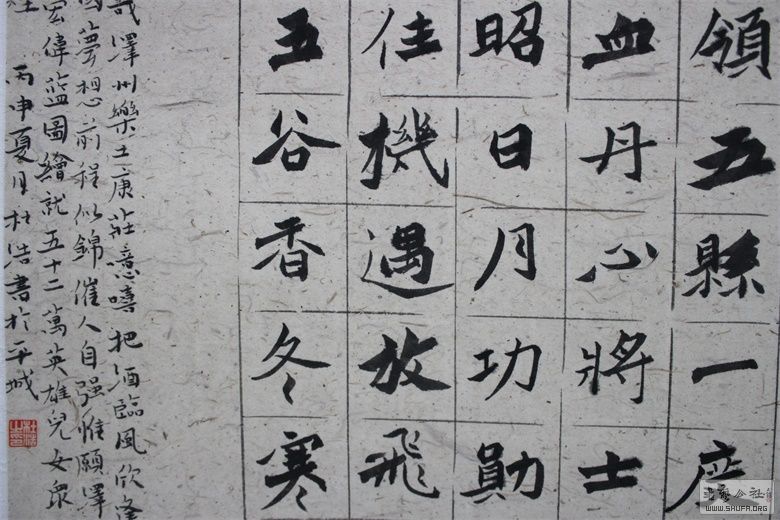 領五縣一座
血丹心將士
昭日月功勛
佳機遇放飛
五谷香冬寒
哉澤州樂土康莊噫嘻把酒臨風欣逢
夢想前程似錦催人自强惟願澤
宏偉藍圖繪就五十二萬英雄兒女眾
丙申夏月杜浩書於平城
WWW.SHUFA.ORG